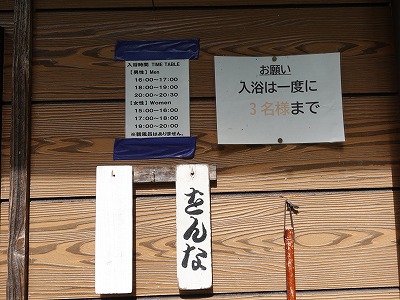 入浴時間 TIME TABLE
【男性】Men
16:00～17:00
18:00～19:00
20:00～20:30
【女性】Women
15:00～16:00
17:00～18:00
19:00～20:00
※朝風呂はありません。
お願い
入浴は一度に
3名様まで
をんな